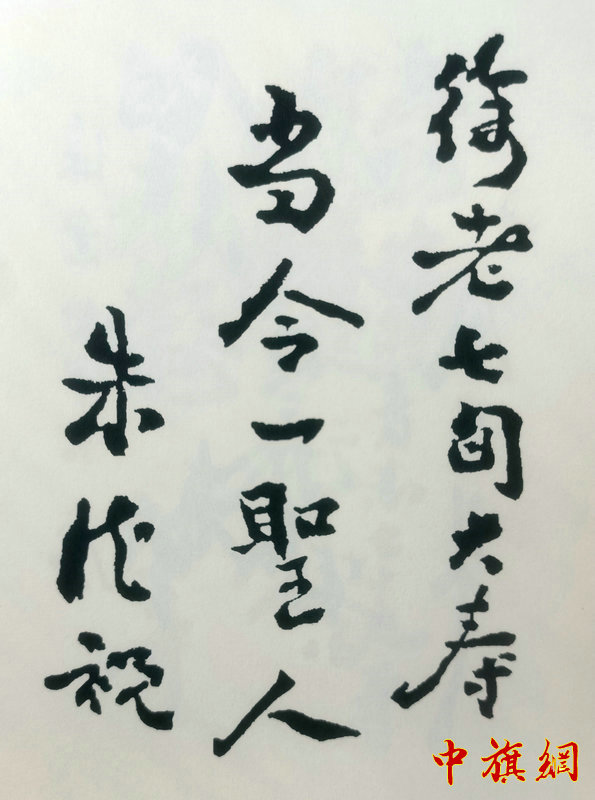 徐老七旬大寿
当今一聖人
朱德祝
中旗網